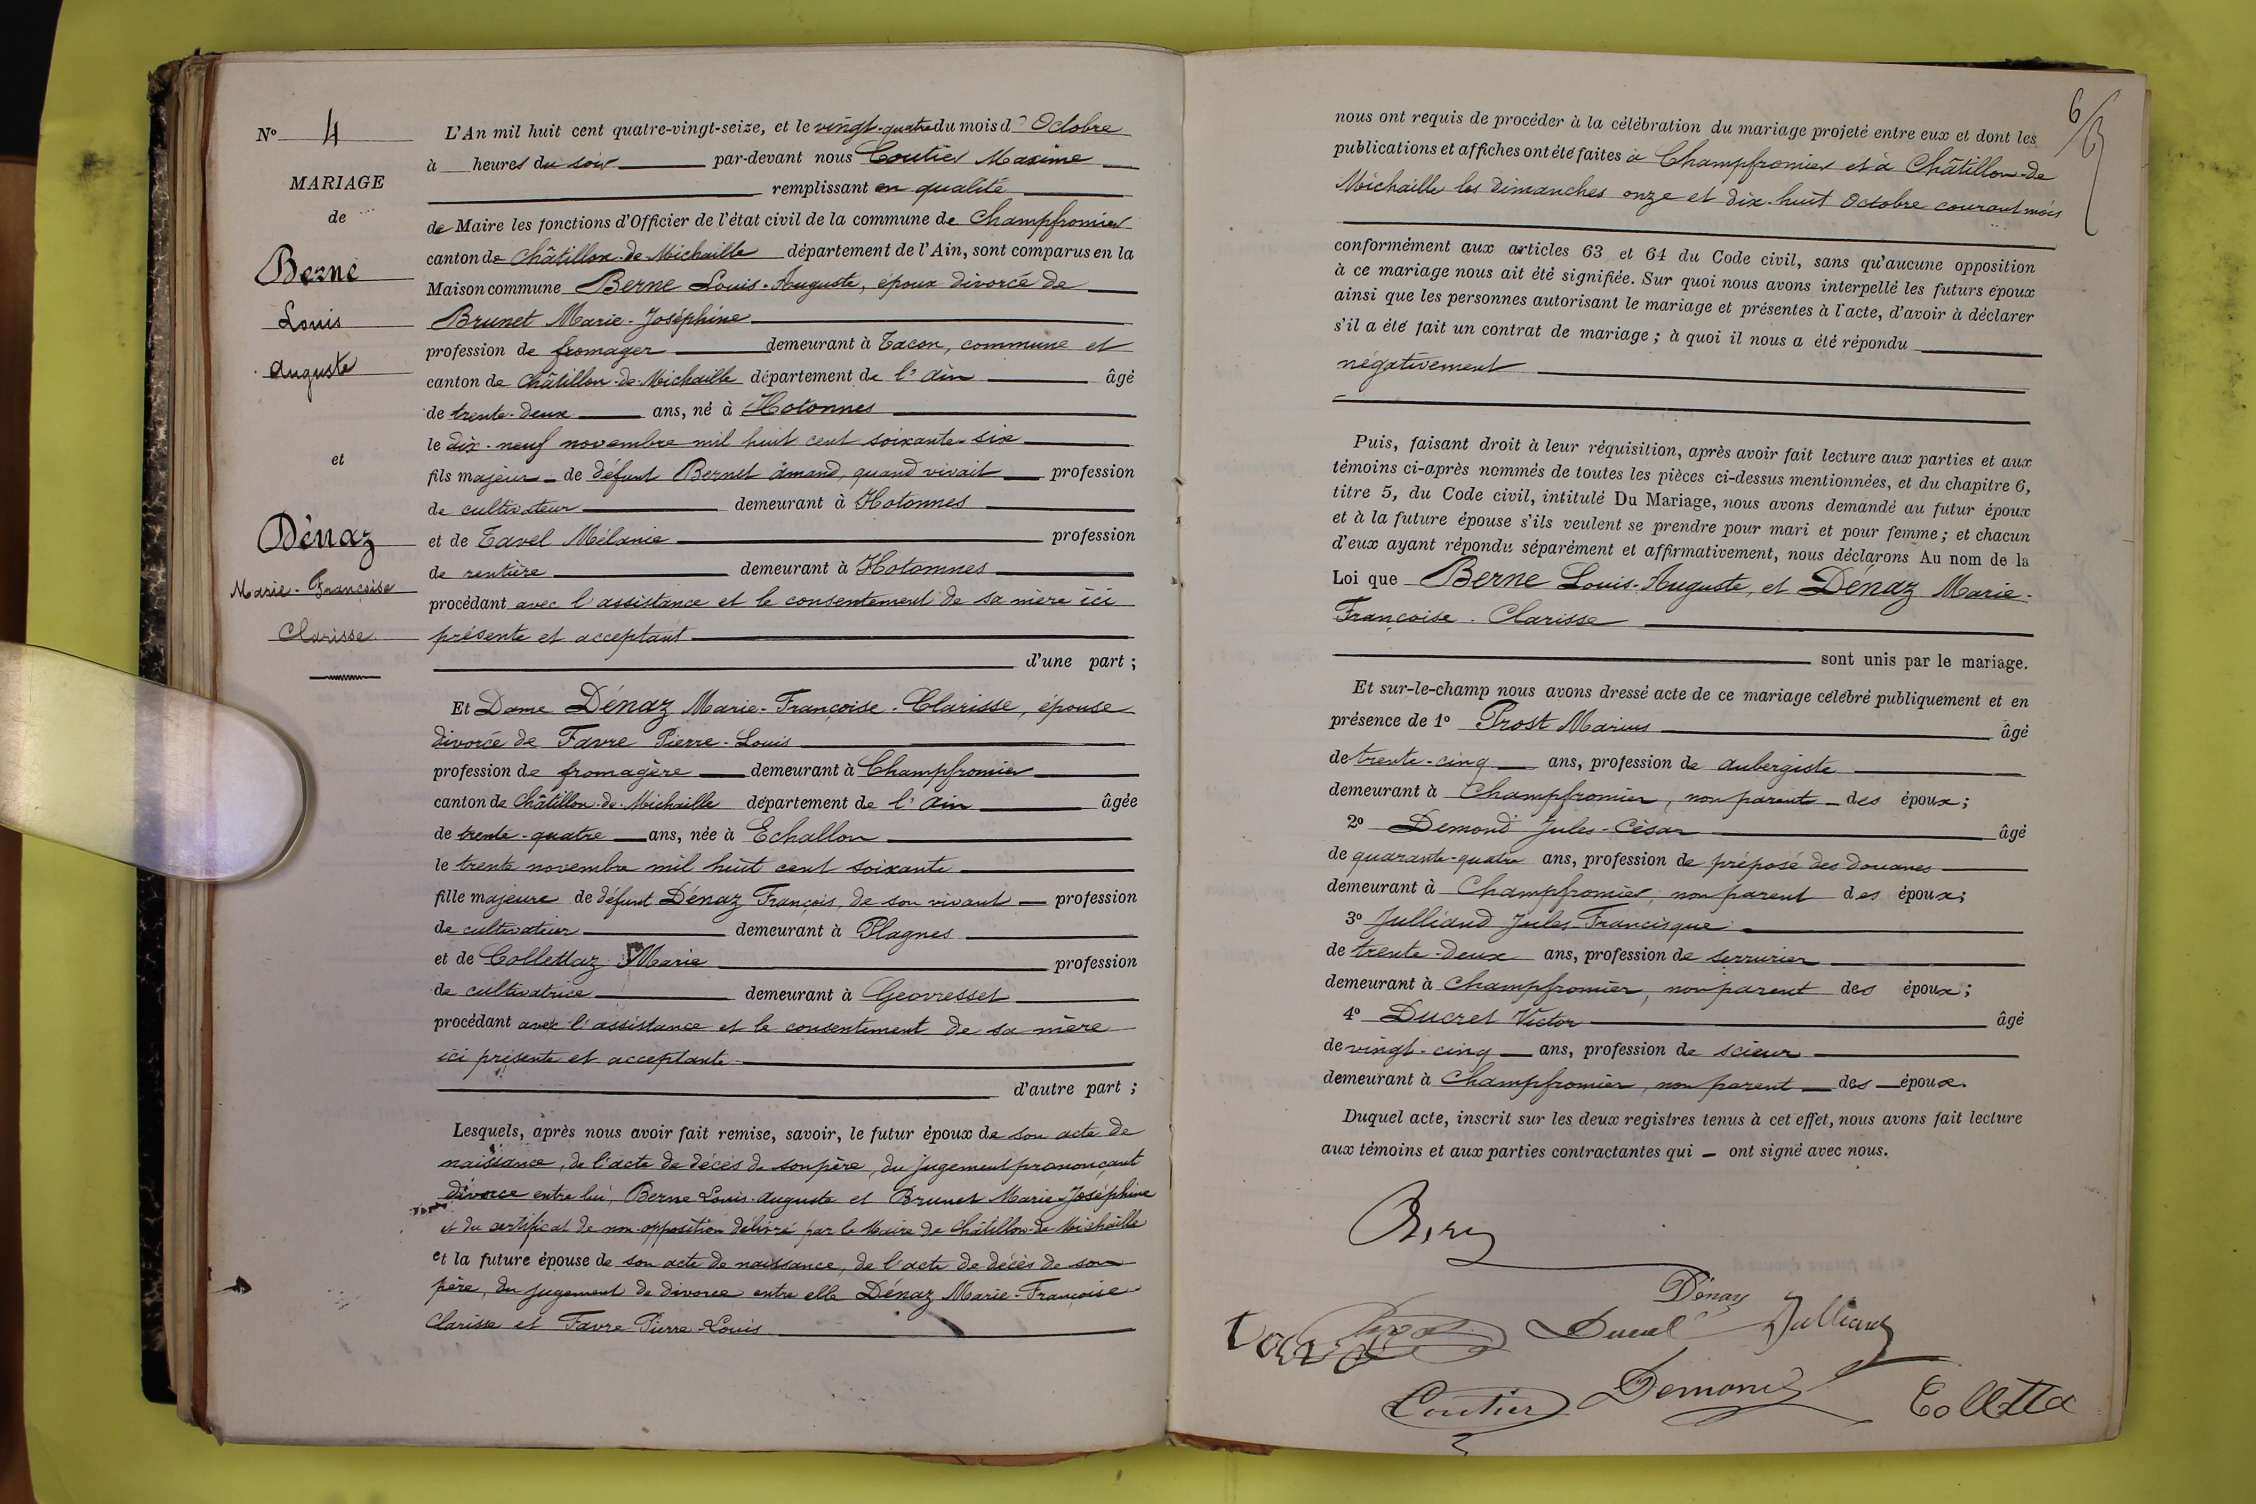 N° 4
MARIAGE
de
Berne
Louis
Auguste
et
Dénaz
Marie-Françoise
Clarisse
L'An mil huit cent quatre-vingt-seize, et le vingt-quatre du mois d'Octobre
à heures du soir par-devant nous Coutier Maxime
remplissant en qualité
de Maire les fonctions d'Officier de l'état civil de la commune de Champfromier
canton de Châtillon-de-Michaille département de l'Ain, sont comparus en la
Maison commune Berne Louis-Auguste, époux divorcé de
Brunet Marie-Joséphine
profession de fromager demeurant à Tacon, commune et
canton de Châtillon-de-Michaille département de l'Ain âgé
de trente-deux ans, né à Hotonnes
le dix-neuf novembre mil huit cent soixante-six
fils majeur de défunt Bernet Amand, quand vivait profession
de cultivateur demeurant à Hotonnes
et de Tavel Mélanie profession
de rentière demeurant à Hotonnes
procédant avec l'assistance et le consentement de sa mère ici
présente et acceptant
d'une part ;
Et Dame Dénaz Marie-Françoise-Clarisse, épouse
divorcé de Favre Pierre-Louis
profession de fromagère demeurant à Champfromier
canton de Châtillon-de-Michaille département de l'Ain âgée
de trente-quatre ans, née à Echallon
le trente novembre mil huit cent soixante
fille majeure de défunt Dénaz François, de son vivant profession
de cultivateur demeurant à Plagnes
et de Collettaz Marie profession
de cultivatrice demeurant à Geovresset
procédant avec l'assistance et le consentement de sa mère
ici présente et acceptante
d'autre part ;
Lesquels, après nous avoir fait remise, savoir, le futur époux de son acte de
naissance, de l'acte de décès de son père, du jugement prononçant
divorce entre lui, Berne Louis-Auguste et Brunet Marie-Joséphine
et du certificat de non opposition délivré par le Maire de Châtillon-de-Michaille
et la future épouse de son acte de naissance, de l'acte de décès de son
père, du jugement de divorce entre elle Dénaz Marie-Françoise
Clarisse et Favre Pierre-Louis
6
nous ont requis de procéder à la célébration du mariage projeté entre eux et dont les
publications et affiches ont été faites à Champfromier et à Châtillon-de
Michaille les Dimanches onze et dix-huit Octobre courant mois
conformément aux articles 63 et 64 du Code civil, sans qu'aucune opposition
à ce mariage nous ait été signifiée. Sur quoi nous avons interpellé les futurs époux
ainsi que les personnes autorisant le mariage et présentes à l'acte, d'avoir à déclarer
s'il a été fait un contrat de mariage ; à quoi il nous a été répondu
négativement
Puis, faisant droit à leur réquisition, après avoir fait lecture aux parties et aux
témoins ci-après nommés de toutes les pièces ci-dessus mentionnées, et du chapitre 6,
titre 5, du Code civil, intitulé Du Mariage, nous avons demandé au futur époux
et à la future épouse s'ils veulent se prendre pour mari et pour femme ; et chacun
d'eux ayant répondu séparément et affirmativement, nous déclarons Au nom de la
Loi que Berne Louis-Auguste, et Dénaz Marie-
Françoise-Clarisse
sont unis par le mariage.
Et sur-le-champ nous avons dressé acte de ce mariage célébré publiquement et en
présence de 1° Prost Marius âgé
de trente-cinq ans, profession de aubergiste
demeurant à Champfromier, non parente des époux ;
2° Demond Jules-César âgé
de quarante-quatre ans, profession de préposé des douanes
demeurant à Champfromier, non parent des époux ;
3° Julliand Jules-Francisque
de trente-deux ans, profession de serrurier
demeurant à Champfromier, non parent des époux ;
4° Ducret Victor âgé
de vingt-cinq ans, profession de scieur
demeurant à Champfromier, non parent des époux.
Duquel acte, inscrit sur les deux registres tenus à cet effet, nous avons fait lecture
aux témoins et aux parties contractantes qui ont signé avec nous.
Dénaz
Prost Ducret Julliand
Coutier Demond Colletta